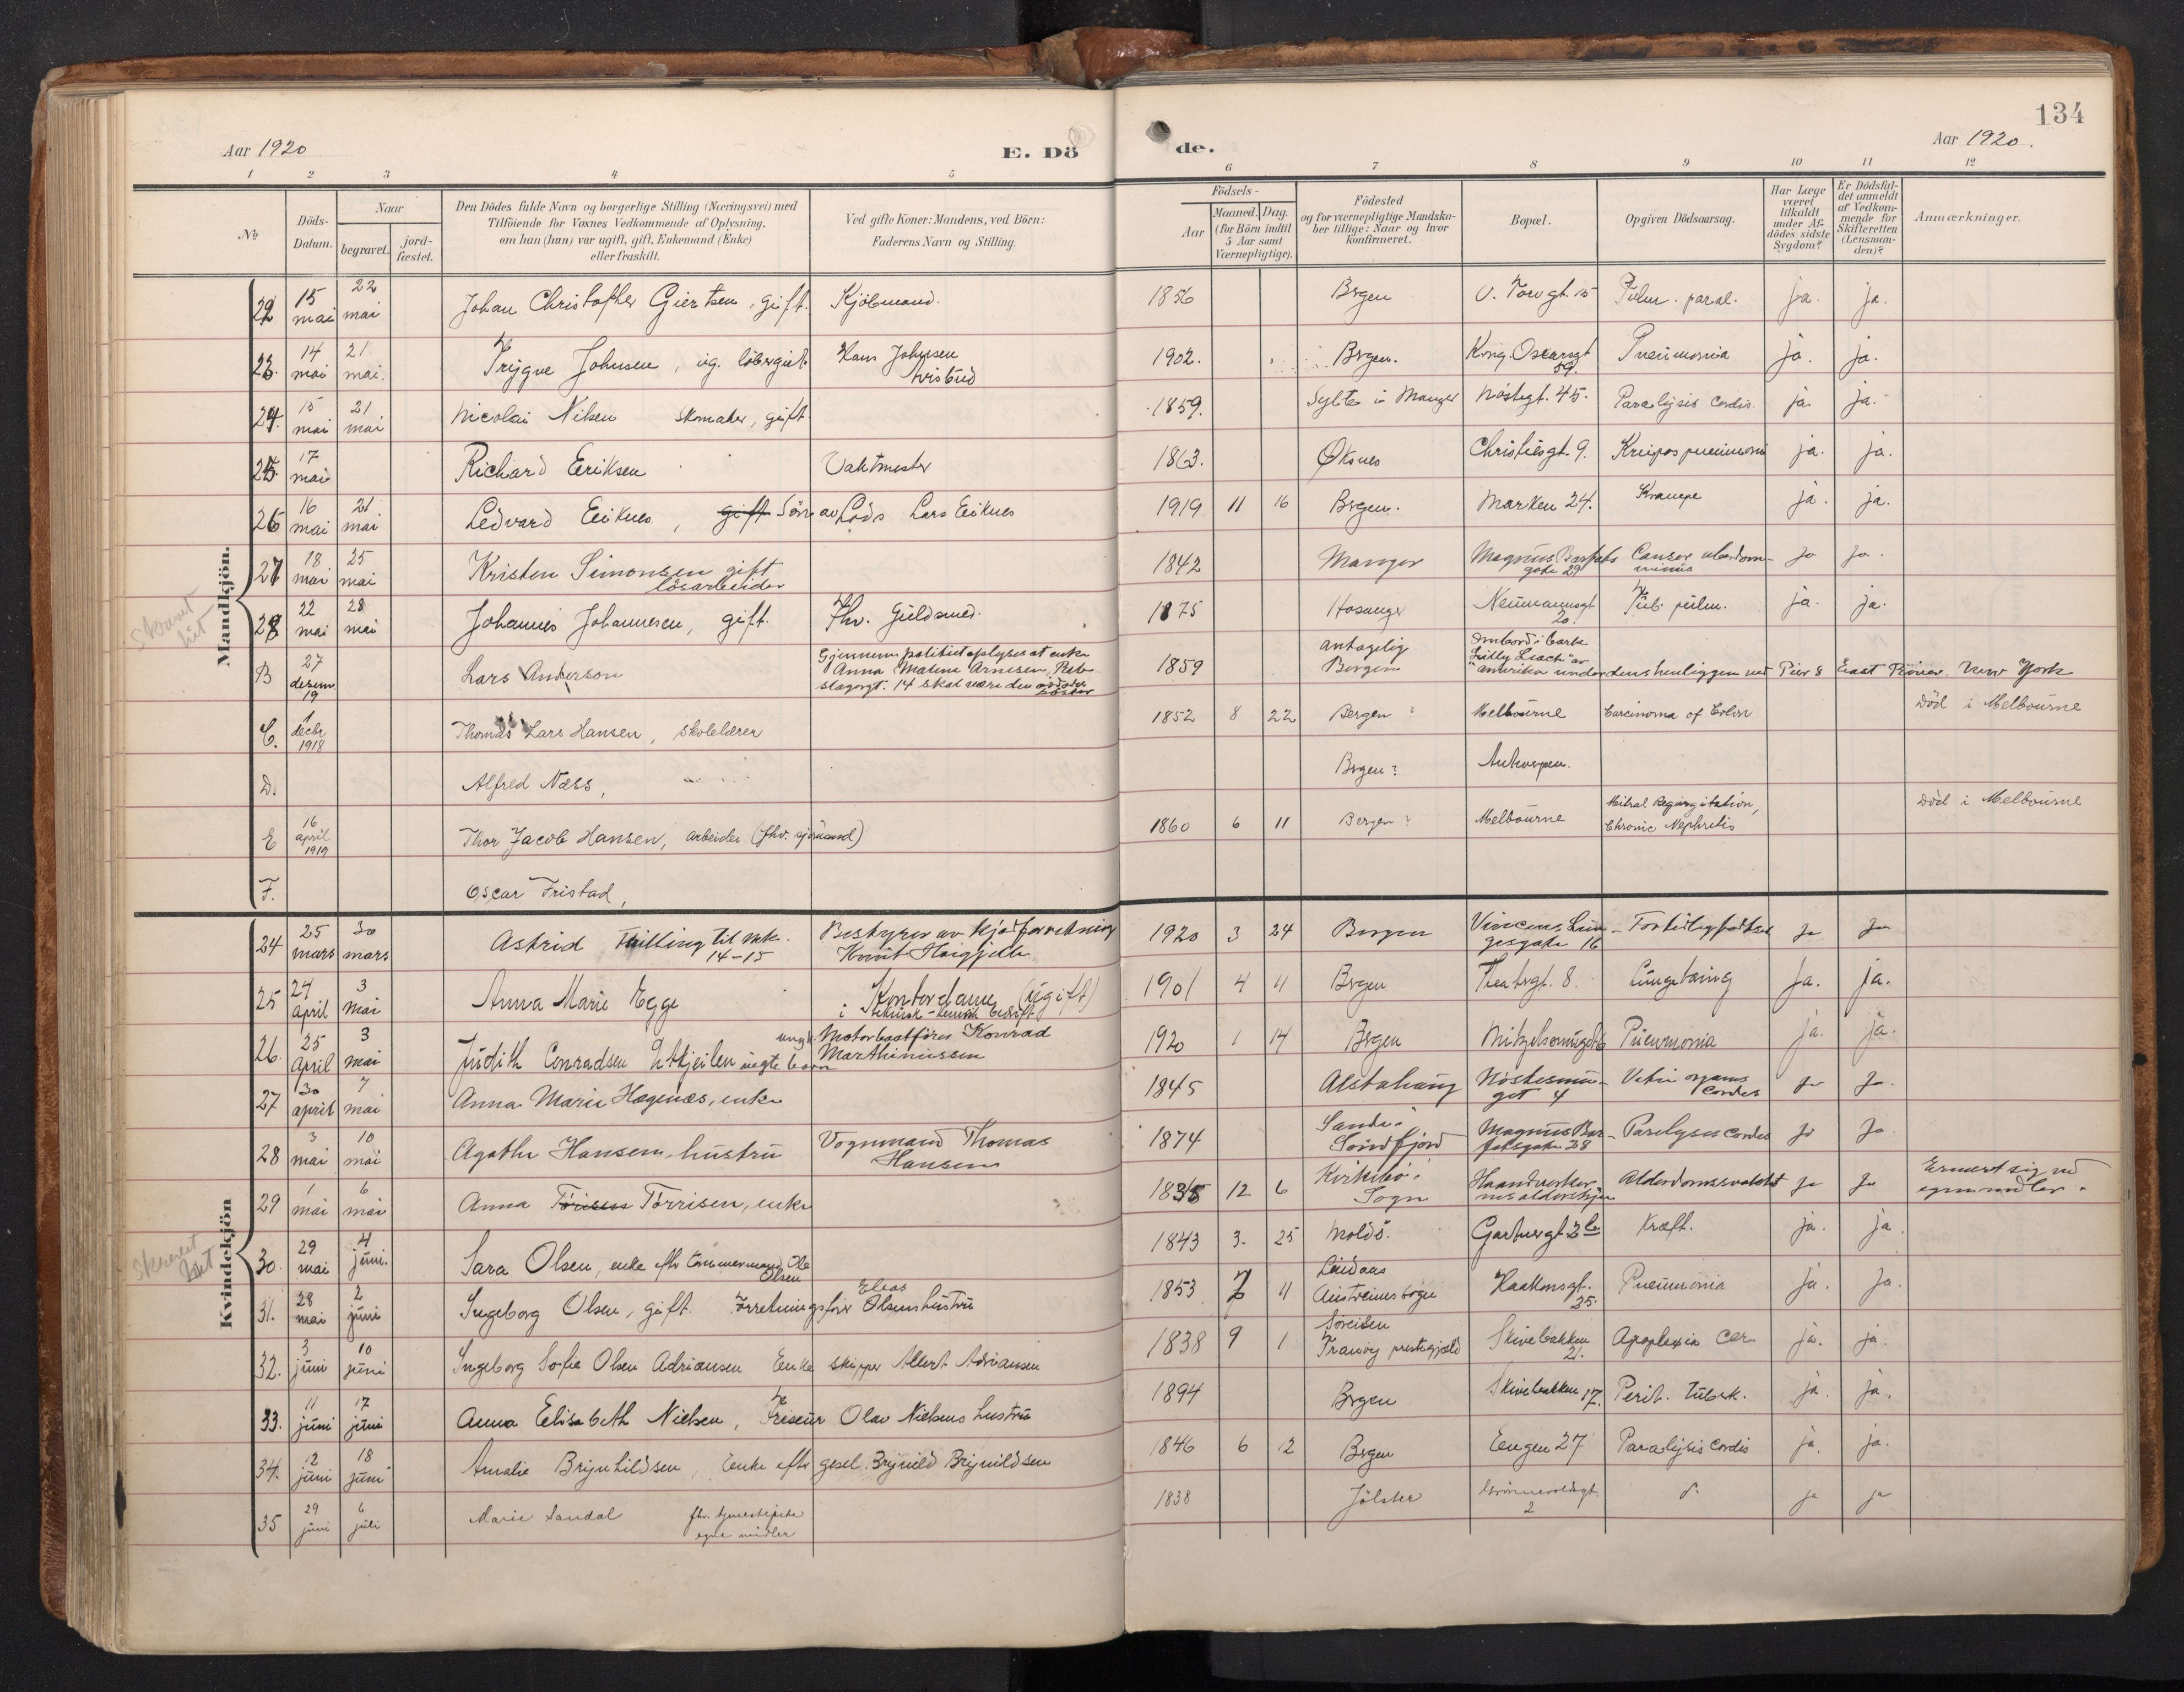 134
Aar 1920
E. Dö
de.
Aar 1920.
1 2 3 4 5 6 7 8 9 10 11 12
No
Döds-
Datum.
Naar
begravet.
jord-
fæstet.
Den Dödes fulde Navn og borgerlige Stilling (Næringsvei) med
Tilföiende for Voxnes Vedkommende af Oplysning,
om han (hun) var ugift, gift, Enkemand (Enke)
eller fraskilt.
Ved gifte Koner: Mandens, ved Börn:
Faderens Navn og Stilling.
Födsels-
Aar
Maaned. Dag.
(for Börn indtil
5 Aar samt
Værnepligtige).
Födested
og for værnepligtige Mandska-
ber tillige: Naar og hvor
konfirmeret.
Bopæl.
Opgiven Dödsaarsag.
Har Læge
været
tilkaldt
under Af-
dödes sidste
Sygdom?
Er Dödsfal-
det anmeldt
af Vedkom-
mende for
Skifteretten
(Lensman-
den)?
Anmærkninger.
Mandkjön.
22 15 mai 22 mai Johan Christopher Giertsen, gift. Kjöbmand. 1856 Bergen V. Torvgt. 15 Pulm. paral. ja. ja.
23. 14 mai 21 mai. Trygve Johnsen, ug. løbergut Hans Johnsen 1902. Bergen. Kong Oscarsgt 59. Pneumonia ja. ja.
24. 15 mai 21 mai Nicolai Nilsen skomaker, gift 1859. Sylte i Manger Nöstegt. 45. Paralysis cordis. ja. ja.
25. 17 mai Richard Eriksen Vaktmester 1863. Øksnes Christiesgt. 9. Krupøs pneumoni ja. ja.
26 16 mai 21 mai Ledvard Eiknes, gift Sön av Lods Lars Eiknes 1919 11 16 Bergen. Marken 24. Krampe ja. ja.
27 18 mai 25 mai Kristen Simonsen gift
løsarbeider 1842 Manger Magnus Barfots
gate 29 Canser abdom-
minus ja ja.
28 22 mai 28 mai Johannes Johannesen, gift. Fhv. Guldsmed. 1875 Hosanger Neumannsgt 20. Tub. pulm. ja. ja.
B 27 desem. 19 Lars Anderson Gjennem politiet oplyses at enke
Anna Malene Arnesen, Reb-
slagergt. 14 skal være den avdødes
søster 1859 antagelig
Bergen Ombord i bark
"Lilly Leach" av
amerika under dens henliggen ved Pier 8 East River New York
C. 1 decbr 1918 Thomas Lars Hansen, skolelærer 1852 8 22 Bergen? Melbourne Carcinoma of Colon Död i Melbourne
D. Alfred Næss, Bergen? Antwerpen.
E 16 april 1919 Thor Jacob Hansen, arbeider (fhv. sjømand) 1860 6 11 Bergen? Melbourne Mitral Regurgitation,
Chronic Nephritis Död i Melbourne
F. Oscar Fristad,
Kvindekjön
24 25 mars 30 mars Astrid Tvilling til nr.
14-15 Bestyrer av kjødforretning
Knut Haigjelte 1920 3 24 Bergen Vincens Lun-
gesgate 16 For tidlig fødsel ja ja
25 24 April 3 Mai Anna Marie Egge Kontordame (ugift)
i teknisk-kemisk bedrift 1901 4 11 Bergen Theatergt. 8. Lungetæring Ja. ja.
26. 25 April 3 mai Judith Conradsen Utkjeilen uegte barn ungk. Motorbaatfører Konrad
Marthinussen 1920 1 14 Bergen Pneumonia ja. ja.
27 30 april 7 mai Anna Marie Hagenæs, enke 1845 Alstahaug Nöstesmu-
get 4 Vitium organs
cordis ja ja.
28 3 mai 10 mai Agathe Hansen, hustru Vognmand Thomas
Hansen 1874 Sande i
Söndfjord Magnus Bar-
fotsgate 28 Paralyses cordis ja ja
29 1 mai 6 mai Anna Tørisen Tørrisen, enke 1835 12 6 Kirkebö i
Sogn Haandverker-
nes aldershjem Alderdomssvakhet ja ja Ernæret sig ved
egne midler.
30. 29 mai 4 juni. Sara Olsen, enke eftr tömmermand Ole
Olsen 1843 3. 25 Moldö. Gartnergt 2b Kræft. ja. ja.
31. 28 mai 2 juni Ingeborg Olsen, gift. Forretningsfører Elias
Olsens hustru 1853 7 11 Lindaas
Austreims sogn Haakonsgt.
25. Pneumonia ja. Ja.
32. 3 juni 10 juni Ingeborg Sofie Olsen Adriansen Enke skipper Albert Adriansen 1838 9 1 Söreisen
Tranöy prestegjæld Skivebakken
21. Apoplexia cer. ja. ja.
33. 11 juni 17 juni Anna Elisabeth Nielsen, Frisør Olav Nielsens hustru 1894 Bergen Skivebakken 17. Perit. tuberk. ja. ja.
34. 12 juni 18 juni Amalie Brynhildsen, Enke eftr gesel. Brynild Brynildsen 1846 6 12 Bergen Engen 27 Paralysis cordis ja. ja.
35 29 juni 6 juli Marie Sandal fhv. tjenestepike
egne midler 1838 Jölster Grönnevoldsgt.
2 ja ja